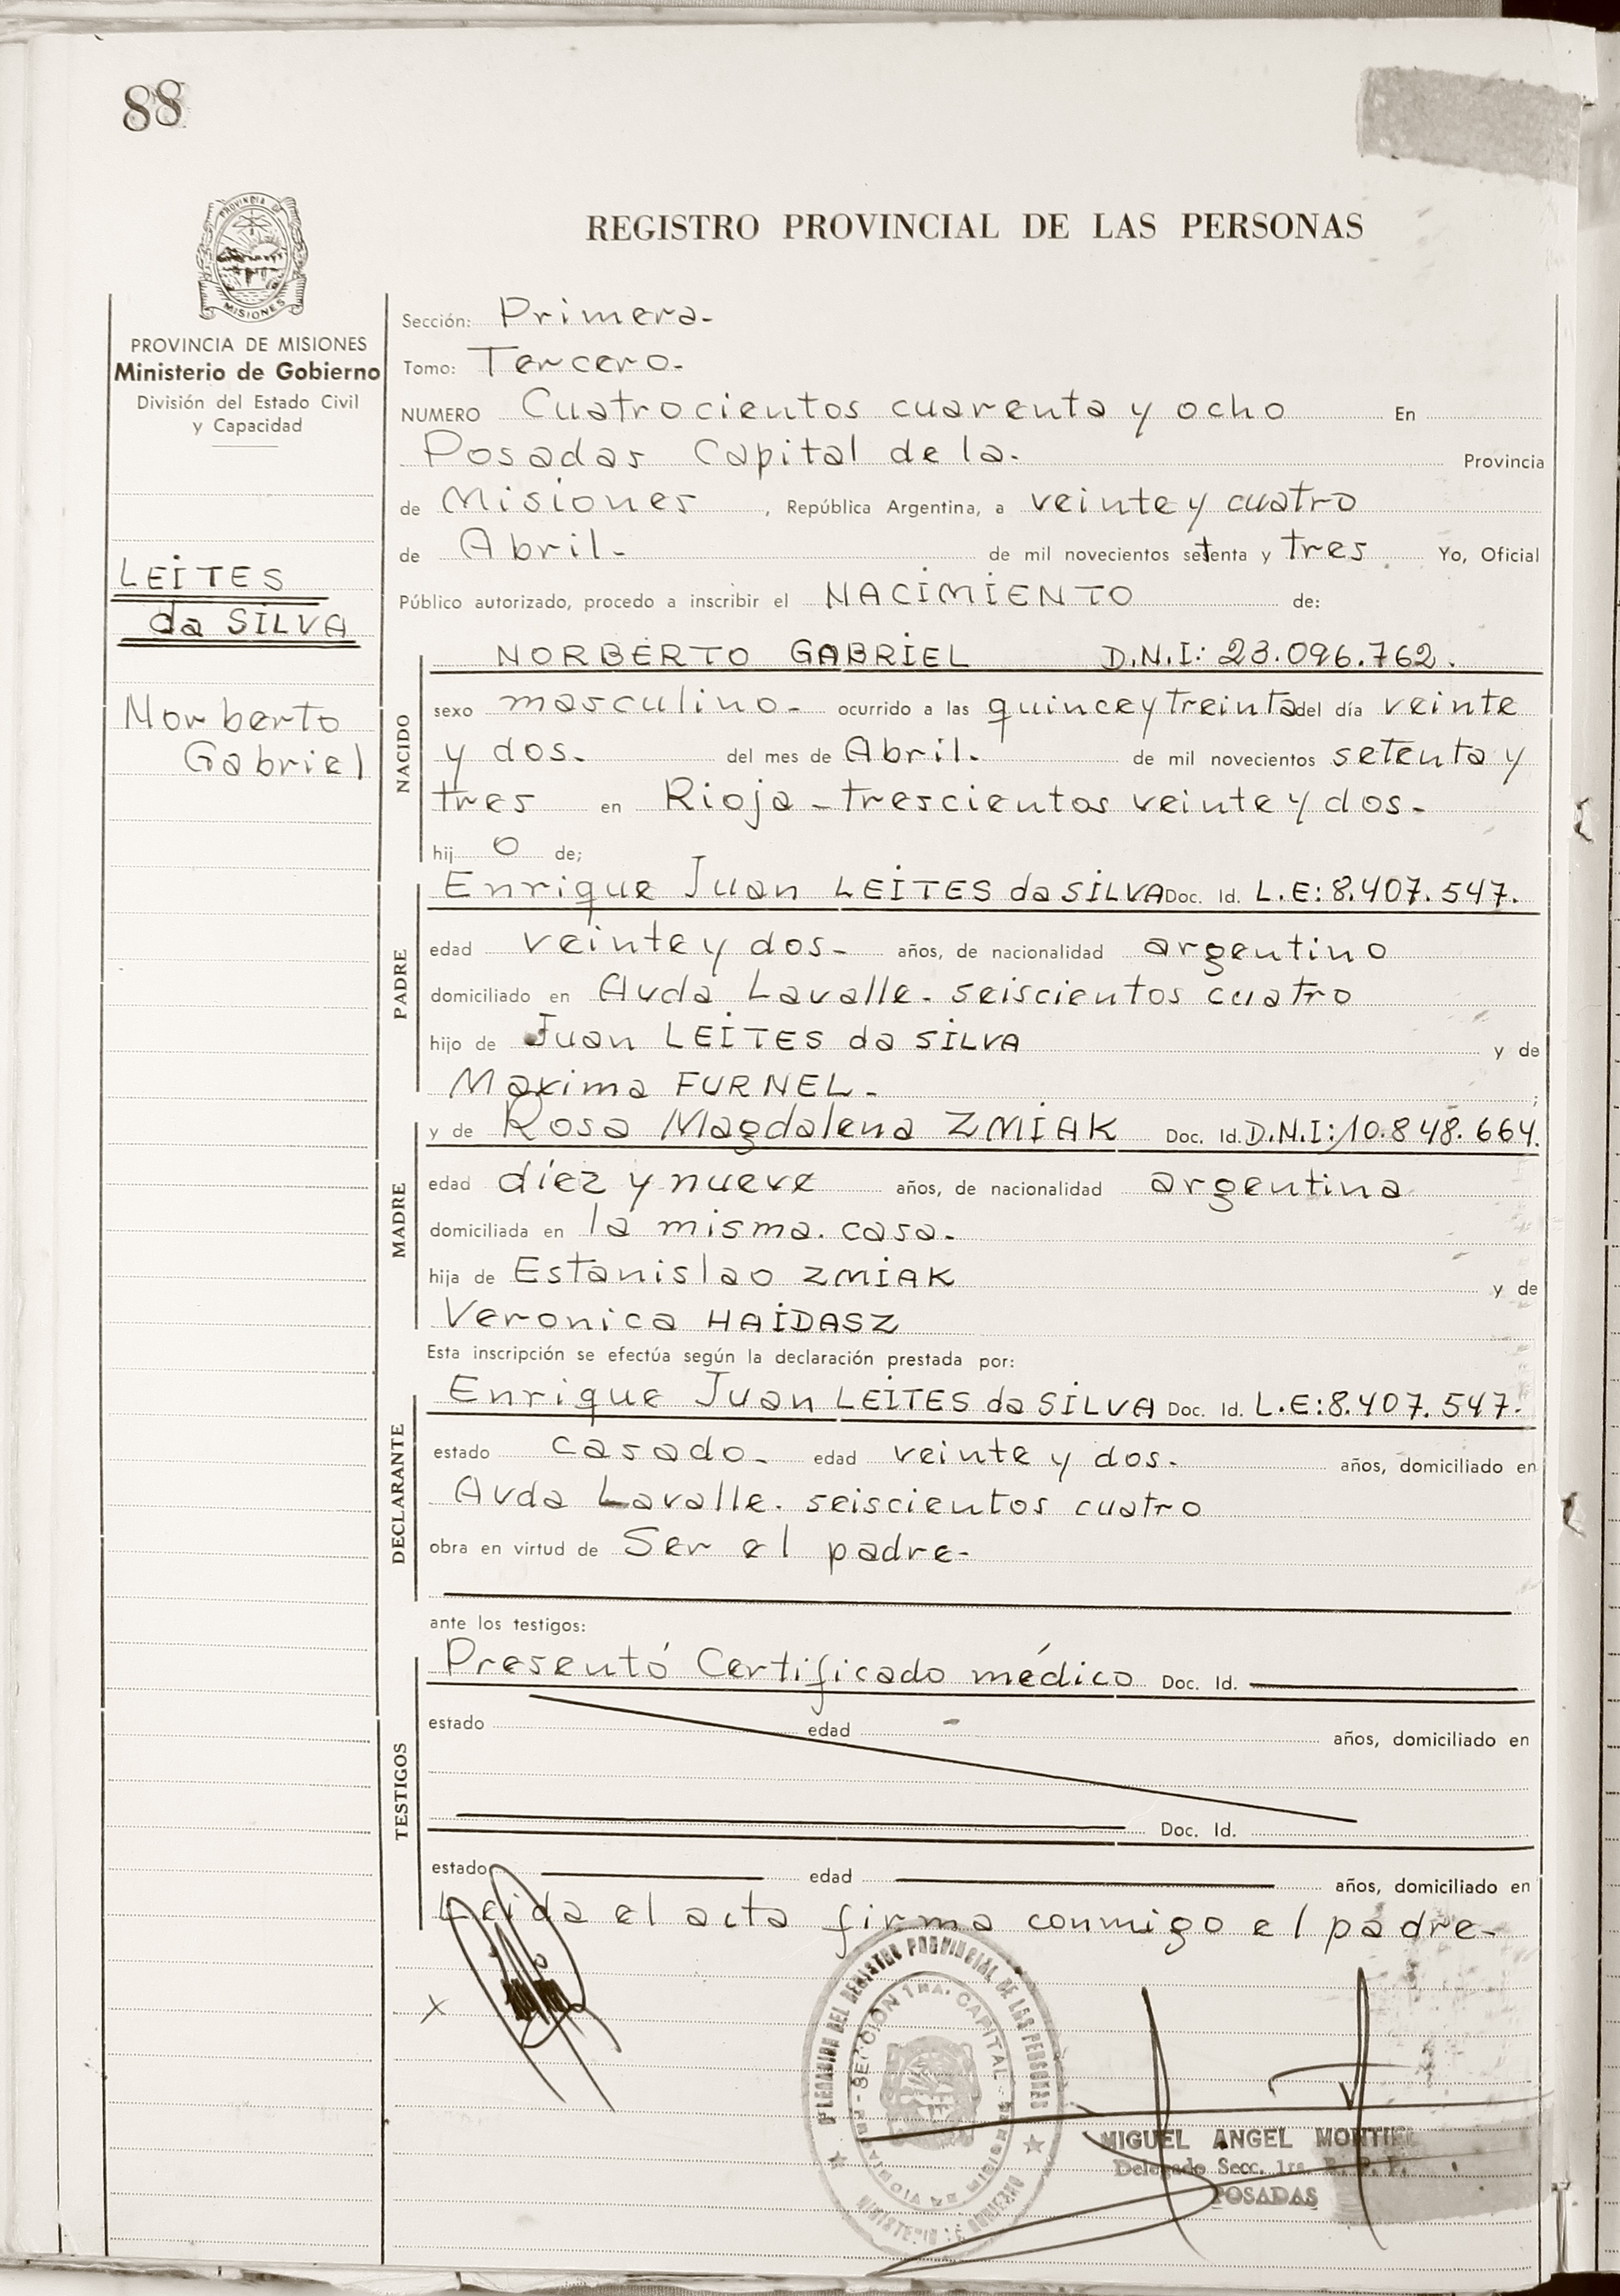 88
PROVINCIA DE
MISIONES
REGISTRO PROVINCIAL DE LAS PERSONAS
PROVINCIA DE MISIONES
Ministerio de Gobierno
División del Estado Civil
y Capacidad
LEITES
da SILVA
Norberto
Gabriel
Sección: Primera-
Tomo: Tercero-
NUMERO Cuatrocientos cuarenta y ocho En
Posadas Capital de la. Provincia
de Misiones, República Argentina, a veinte y cuatro
de Abril- de mil novecientos setenta y tres Yo, Oficial
Público autorizado, procedo a inscribir el NACIMIENTO de:
NACIDO
NORBERTO GABRIEL D.N.I: 23.096.762.
sexo masculino- ocurrido a las quince y treinta del día veinte
y dos- del mes de Abril. de mil novecientos setenta y
tres en Rioja - trescientos veinte y dos-
hij o de;
PADRE
Enrique Juan LEITES da SILVA Doc. Id. L.E: 8.407.547.
edad veinte y dos- años, de nacionalidad argentino
domiciliado en Avda Lavalle. seiscientos cuatro
hijo de Juan LEITES da SILVA y de
Maxima FURNEL- ;
MADRE
y de Rosa Magdalena ZMIAK Doc. Id. D.N.I: 10.848.664.
edad diez y nueve años, de nacionalidad argentina
domiciliada en la misma. casa-
hija de Estanislao ZMIAK y de
Veronica HAIDASZ
Esta inscripción se efectúa según la declaración prestada por:
DECLARANTE
Enrique Juan LEITES da SILVA Doc. Id. L.E: 8.407.547.
estado casado- edad veinte y dos. años, domiciliado en
Avda Lavalle. seiscientos cuatro
obra en virtud de Ser el padre-
ante los testigos:
TESTIGOS
Presentó Certificado médico Doc. Id.
estado edad años, domiciliado en
Doc. Id.
estado edad años, domiciliado en
Leida el acta firma conmigo el padre-
x
DEL REGISTRO PROVINCIAL DE LAS PERSONAS
SECCION 1RA. CAPITAL
MIGUEL ANGEL MONTIEL
Delegado Secc. 1ra. R. P. P.
POSADAS